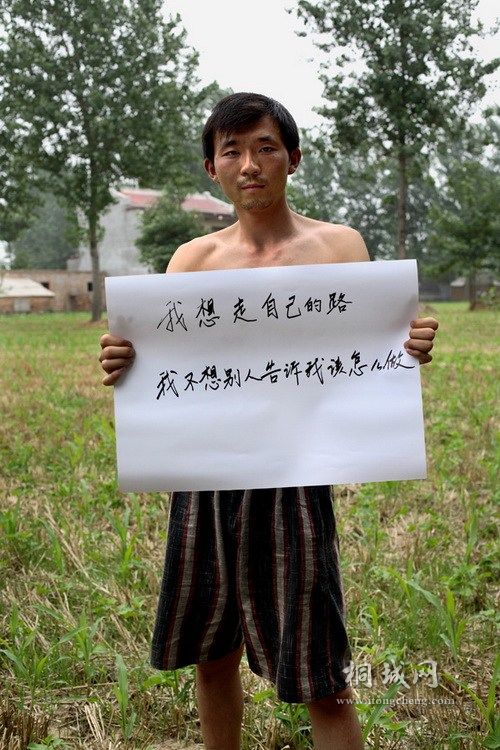 我想走自己的路
我不想别人告诉我该怎么做
桐城网
itongcheng.com